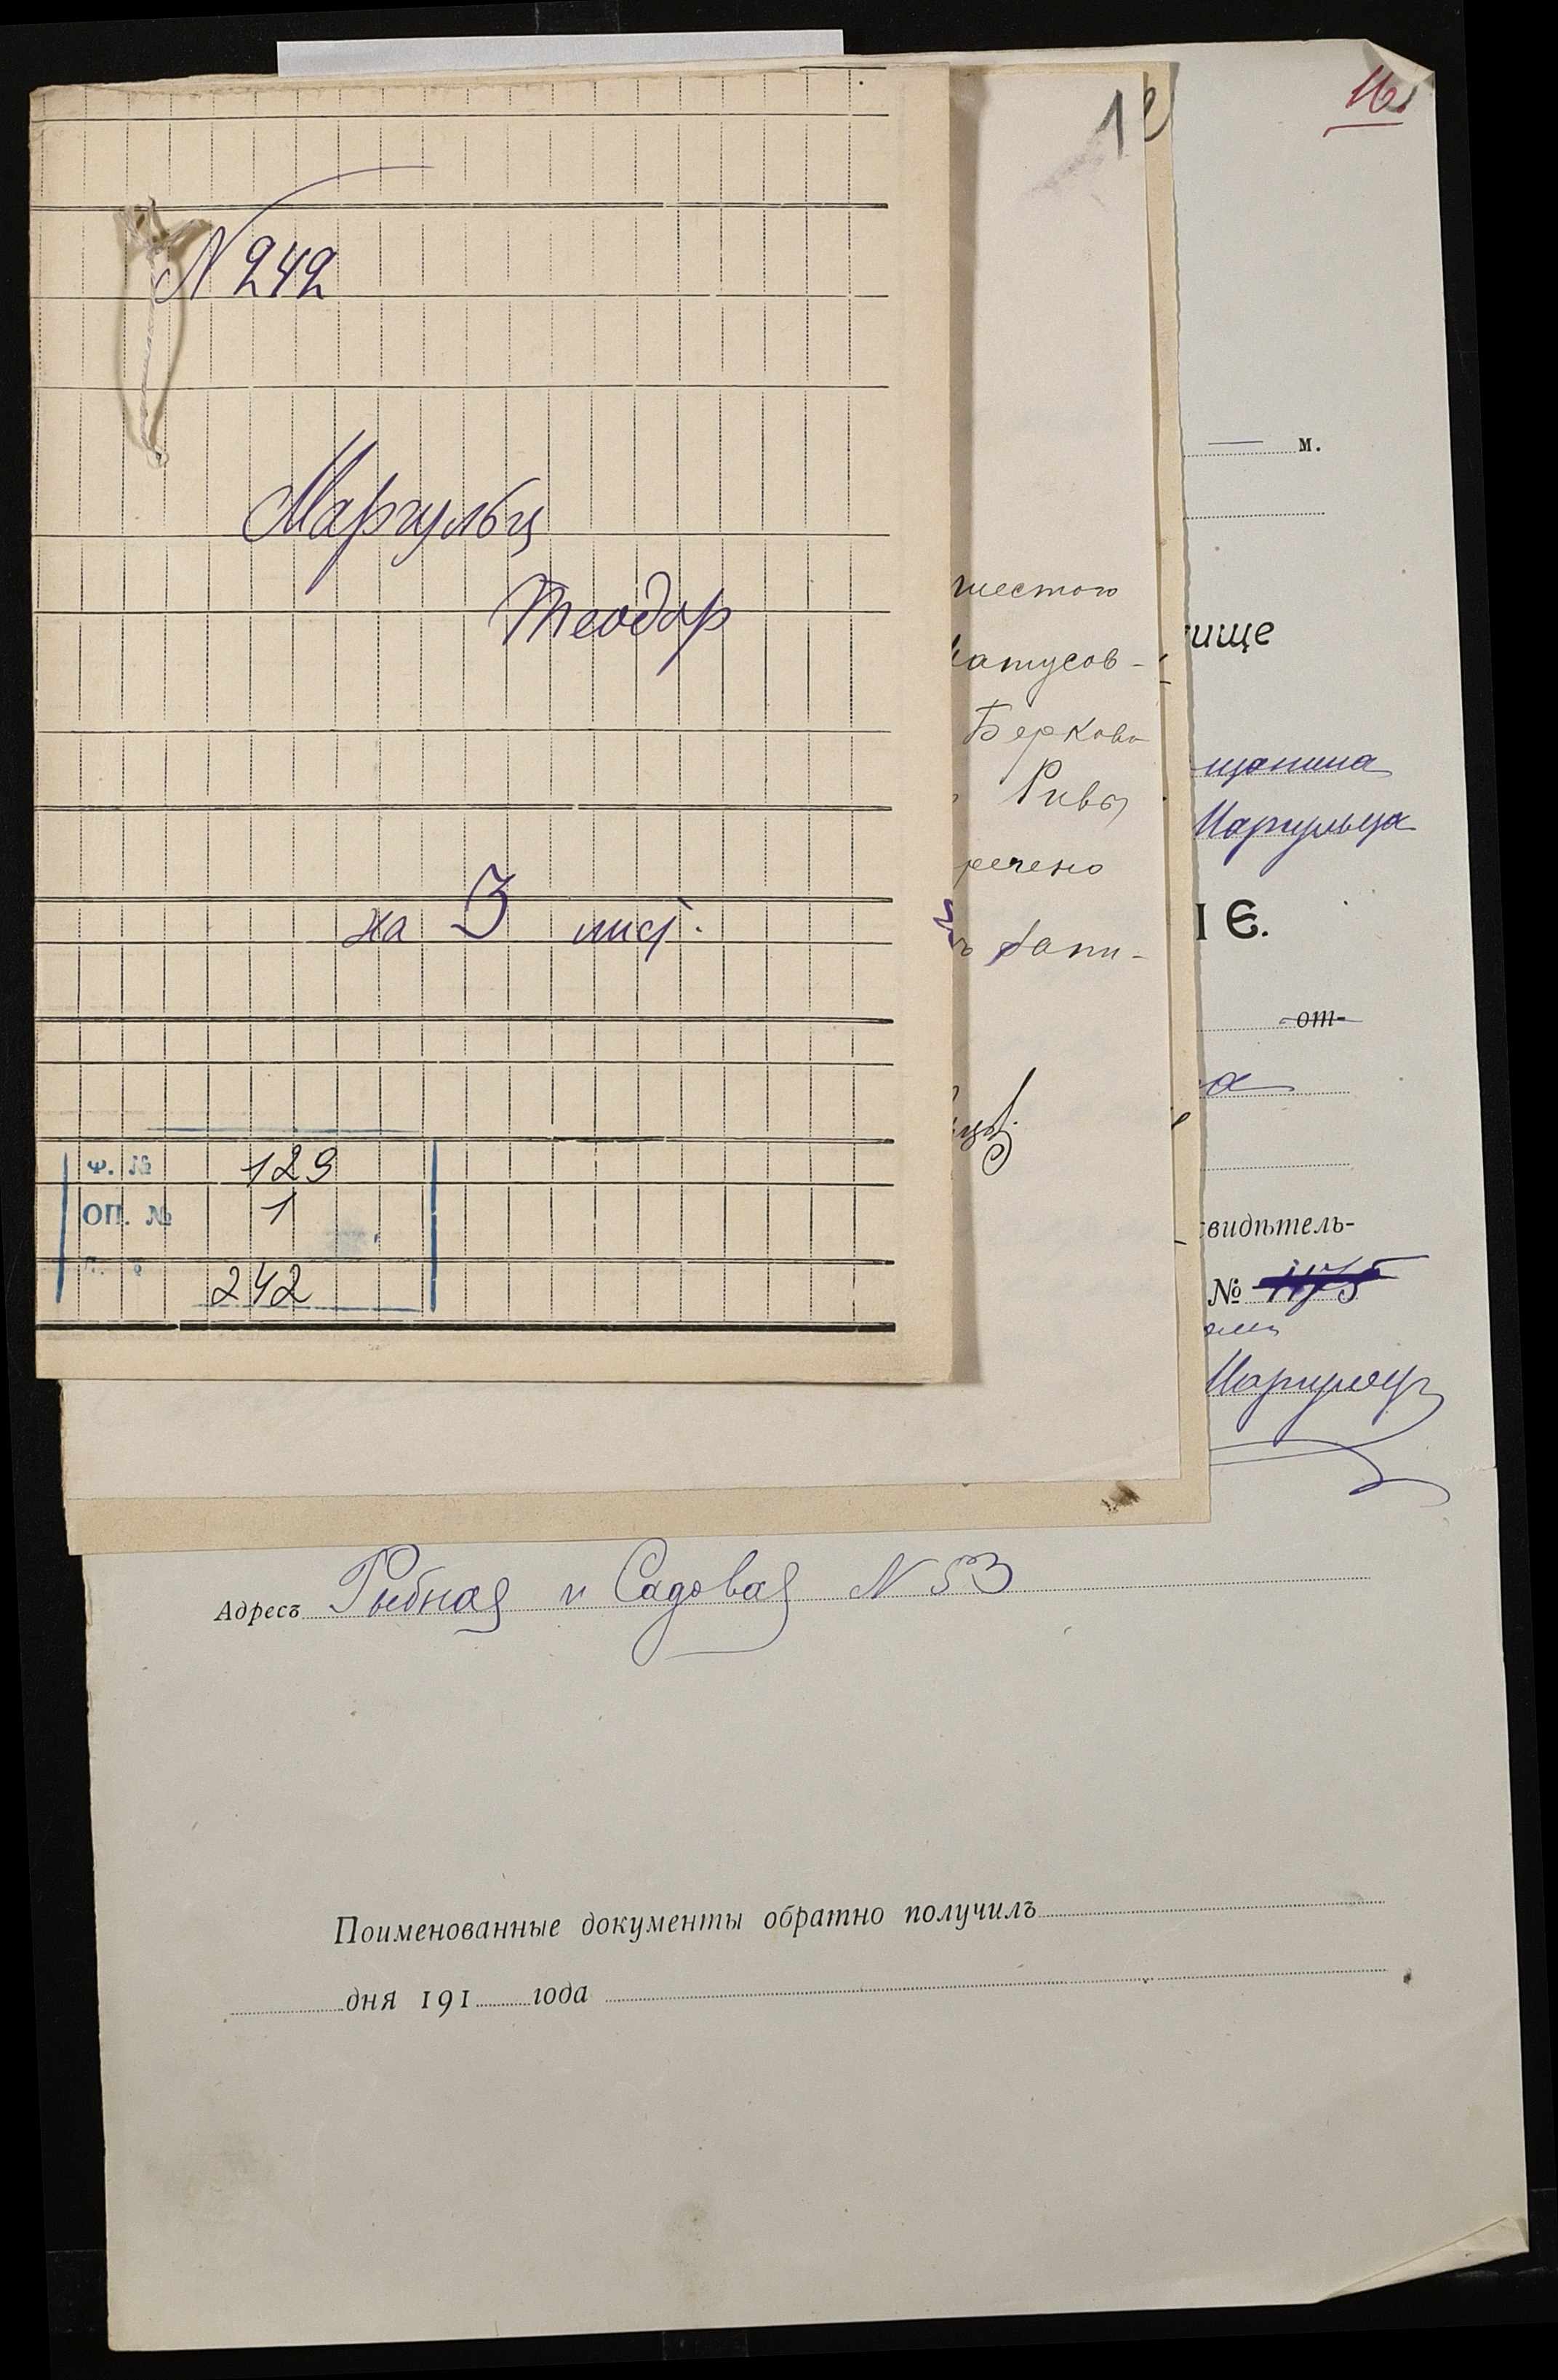 N 242
Маргульц
Теодор
на 3 лист.
Ф. № 129
ОП. № 1
242
1
16
м.
шестого
Берково
Ривы
речено
ище
щанина
Маргульца
ІЕ.
от-
а
видѣтель-
№ 1175
Маргульц
Адресъ Рыбная и Садовая N 53
Поименованные документы обратно получилъ
дня 191 года